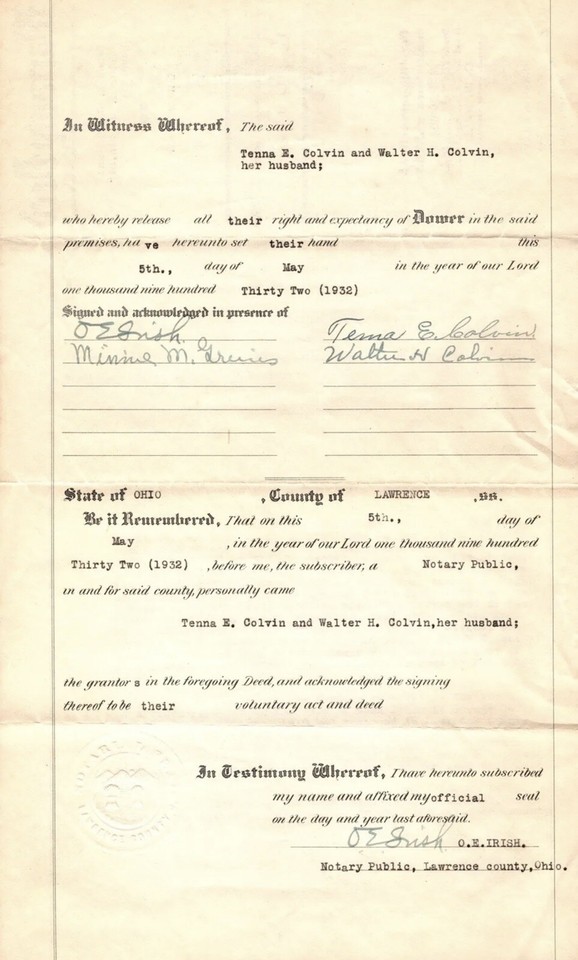 In Witness Whereof, The said
Tenna E. Colvin and Walter H. Colvin,
her husband;
who hereby release all their right and expectancy of Dower in the said
premises, ha ve hereunto set their hand this
5th., day of May in the year of our Lord
one thousand nine hundred Thirty Two (1932)
Signed and acknowledged in presence of
O E Irish. Tenna E. Colvin.
Minnie M. Walter H Colvin
State of OHIO , County of LAWRENCE , ss.
Be it Remembered, That on this 5th., day of
May , in the year of our Lord one thousand nine hundred
Thirty Two (1932) , before me, the subscriber, a Notary Public,
in and for said county, personally came
Tenna E. Colvin and Walter H. Colvin,her husband;
the grantor s in the foregoing Deed, and acknowledged the signing
thereof to be their voluntary act and deed
In Testimony Whereof, I have hereunto subscribed
my name and affixed my official seal
on the day and year last aforesaid.
O E Irish O.E.IRISH.
Notary Public, Lawrence county,Ohio.